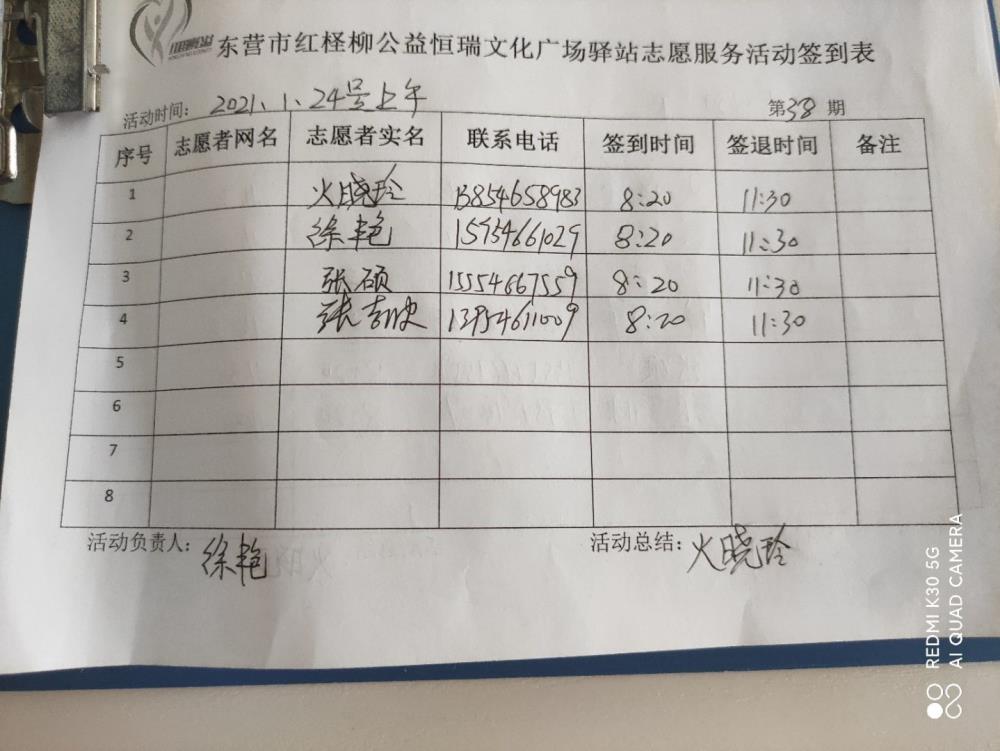 东营市红柽柳公益恒瑞文化广场驿站志愿服务活动签到表
活动时间: 2021.1.24号上午 第38期
序号 志愿者网名 志愿者实名 联系电话 签到时间 签退时间 备注
1 火晓玲 13854658983 8:20 11:30
2 徐艳 15954661029 8:20 11:30
3 张硕 15554667559 8:20 11:30
4 张 13954611009 8:20 11:30
5
6
7
8
活动负责人: 徐艳 活动总结: 火晓玲
REDMI K30 5G
AI QUAD CAMERA